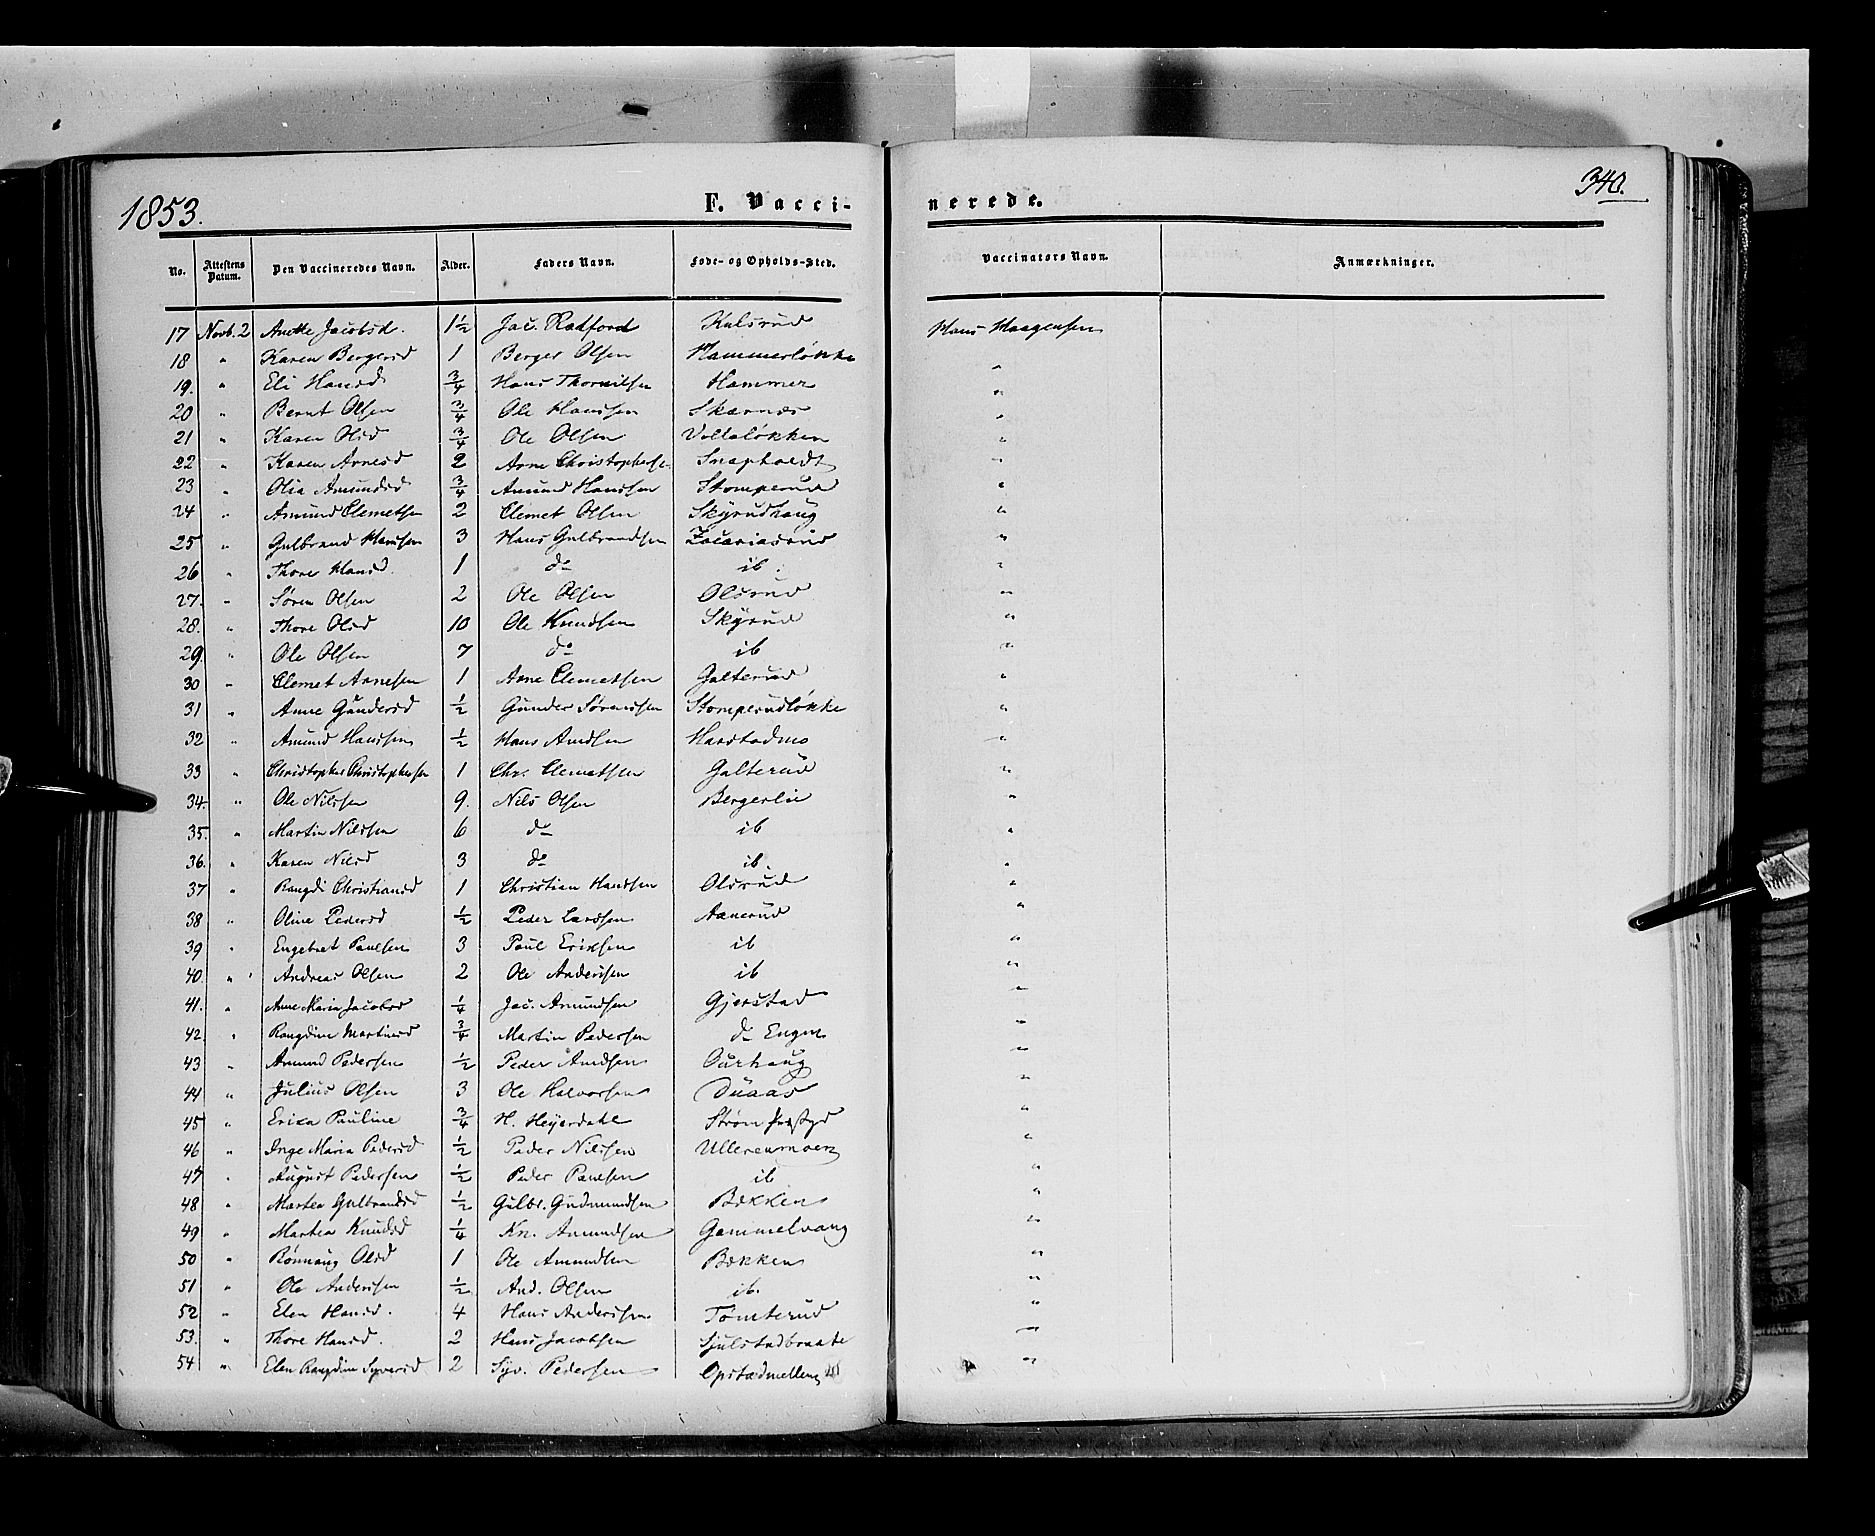 1853. F. Vacci- nerede. 340.
No. Attestens Datum. Den Vaccineredes Navn. Alder. Faders Navn. Føde- og Opholds-Sted. Vaccinators Navn. Anmærkninger.
17 Novb. 2 Anette Jacobsd. 1½ Jac. Radford Kulsrud Hans Haagensen
18 " Karen Bergersd 1 Berger Olsen Hammerløkke "
19. " Eli Hansd ¾ Hans Thorvilsen Hammer "
20 " Bernt Olsen ¾ Ole Hanssen Skarnæs "
21 " Karen Olsd ¾ Ole Olsen Voltaløkken "
22 " Karen Arnesd 2 Arne Christophersen Snapholdt "
23 " Olia Amundsd ¾ Amund Hanssen Stomperud "
24 " Amund Clemetsen 2 Clemet Olsen Skyrudhaug "
25 " Gulbrand Hanssen 3 Hans Gulbrandsen Zacariasrud "
26 " Thore Hansd. 1 do ib. "
27. " Søren Olsen 2 Ole Olsen Olsrud "
28. " Thore Olsd 10 Ole Knudsen Skyrud "
29. " Ole Olsen 7 do ib "
30 " Clemet Arnesen 1 Arne Clemetsen Galterud "
31 " Anne Gundersd ½ Gunder Sørensen Stomperudløkke "
32 " Amund Hanssen ½ Hans Amdsen Harstadmo "
33 " Christopher Christophersen 1 Chr. Clemetsen Galterud "
34. " Ole Nilssen 9. Nils Olsen Bergerlie "
35. " Martin Nilssen 6 do ib "
36. " Karen Nilsd 3 do ib. "
37 " Rangdi Christiansd 1 Christian Hanssen Olsrud "
38 " Oline Pedersd ½ Peder Larssen Aanerud "
39 " Engebret Paulsen 3 Paul Eriksen ib "
40. " Andreas Olsen 2 Ole Anderssen ib "
41. " Anne Maria Jacobsd ¼ Jac. Amundsen Gjerstad "
42. " Rangdine Martinsd ¾ Martin Pedersen do Engen "
43 " Amund Pedersen ½ Peder Amdsen Ourhaug "
44 " Julius Olsen 3 Ole Halvorsen Duaas "
45 " Erica Pauline ¾ H. Heyerdahl Strøm "
46 " Inge Maria Pedersd ½ Peder Nilssen Ullerenmoen "
47 " August Pedersen ½ Peder Paulsen ib "
48 " Marthea Gulbrandsd ½ Gulbr. Gudmundsen Bekken "
49 " Marthea Knudsd ¼ Kn. Amundsen Gammelvang "
50 " Rønnaug Olsd 1 Ole Amundsen Bekken "
51 " Ole Anderssen ½ And. Olsen ib. "
52 " Elen Hansd. 4 Hans Anderssen Tomterud "
53. " Thore Hansd. 2 Hans Jacobsen Sjulstadbraate "
54 " Elen Rangdine Syversd 2 Syv. Pedersen Opstadmellem "